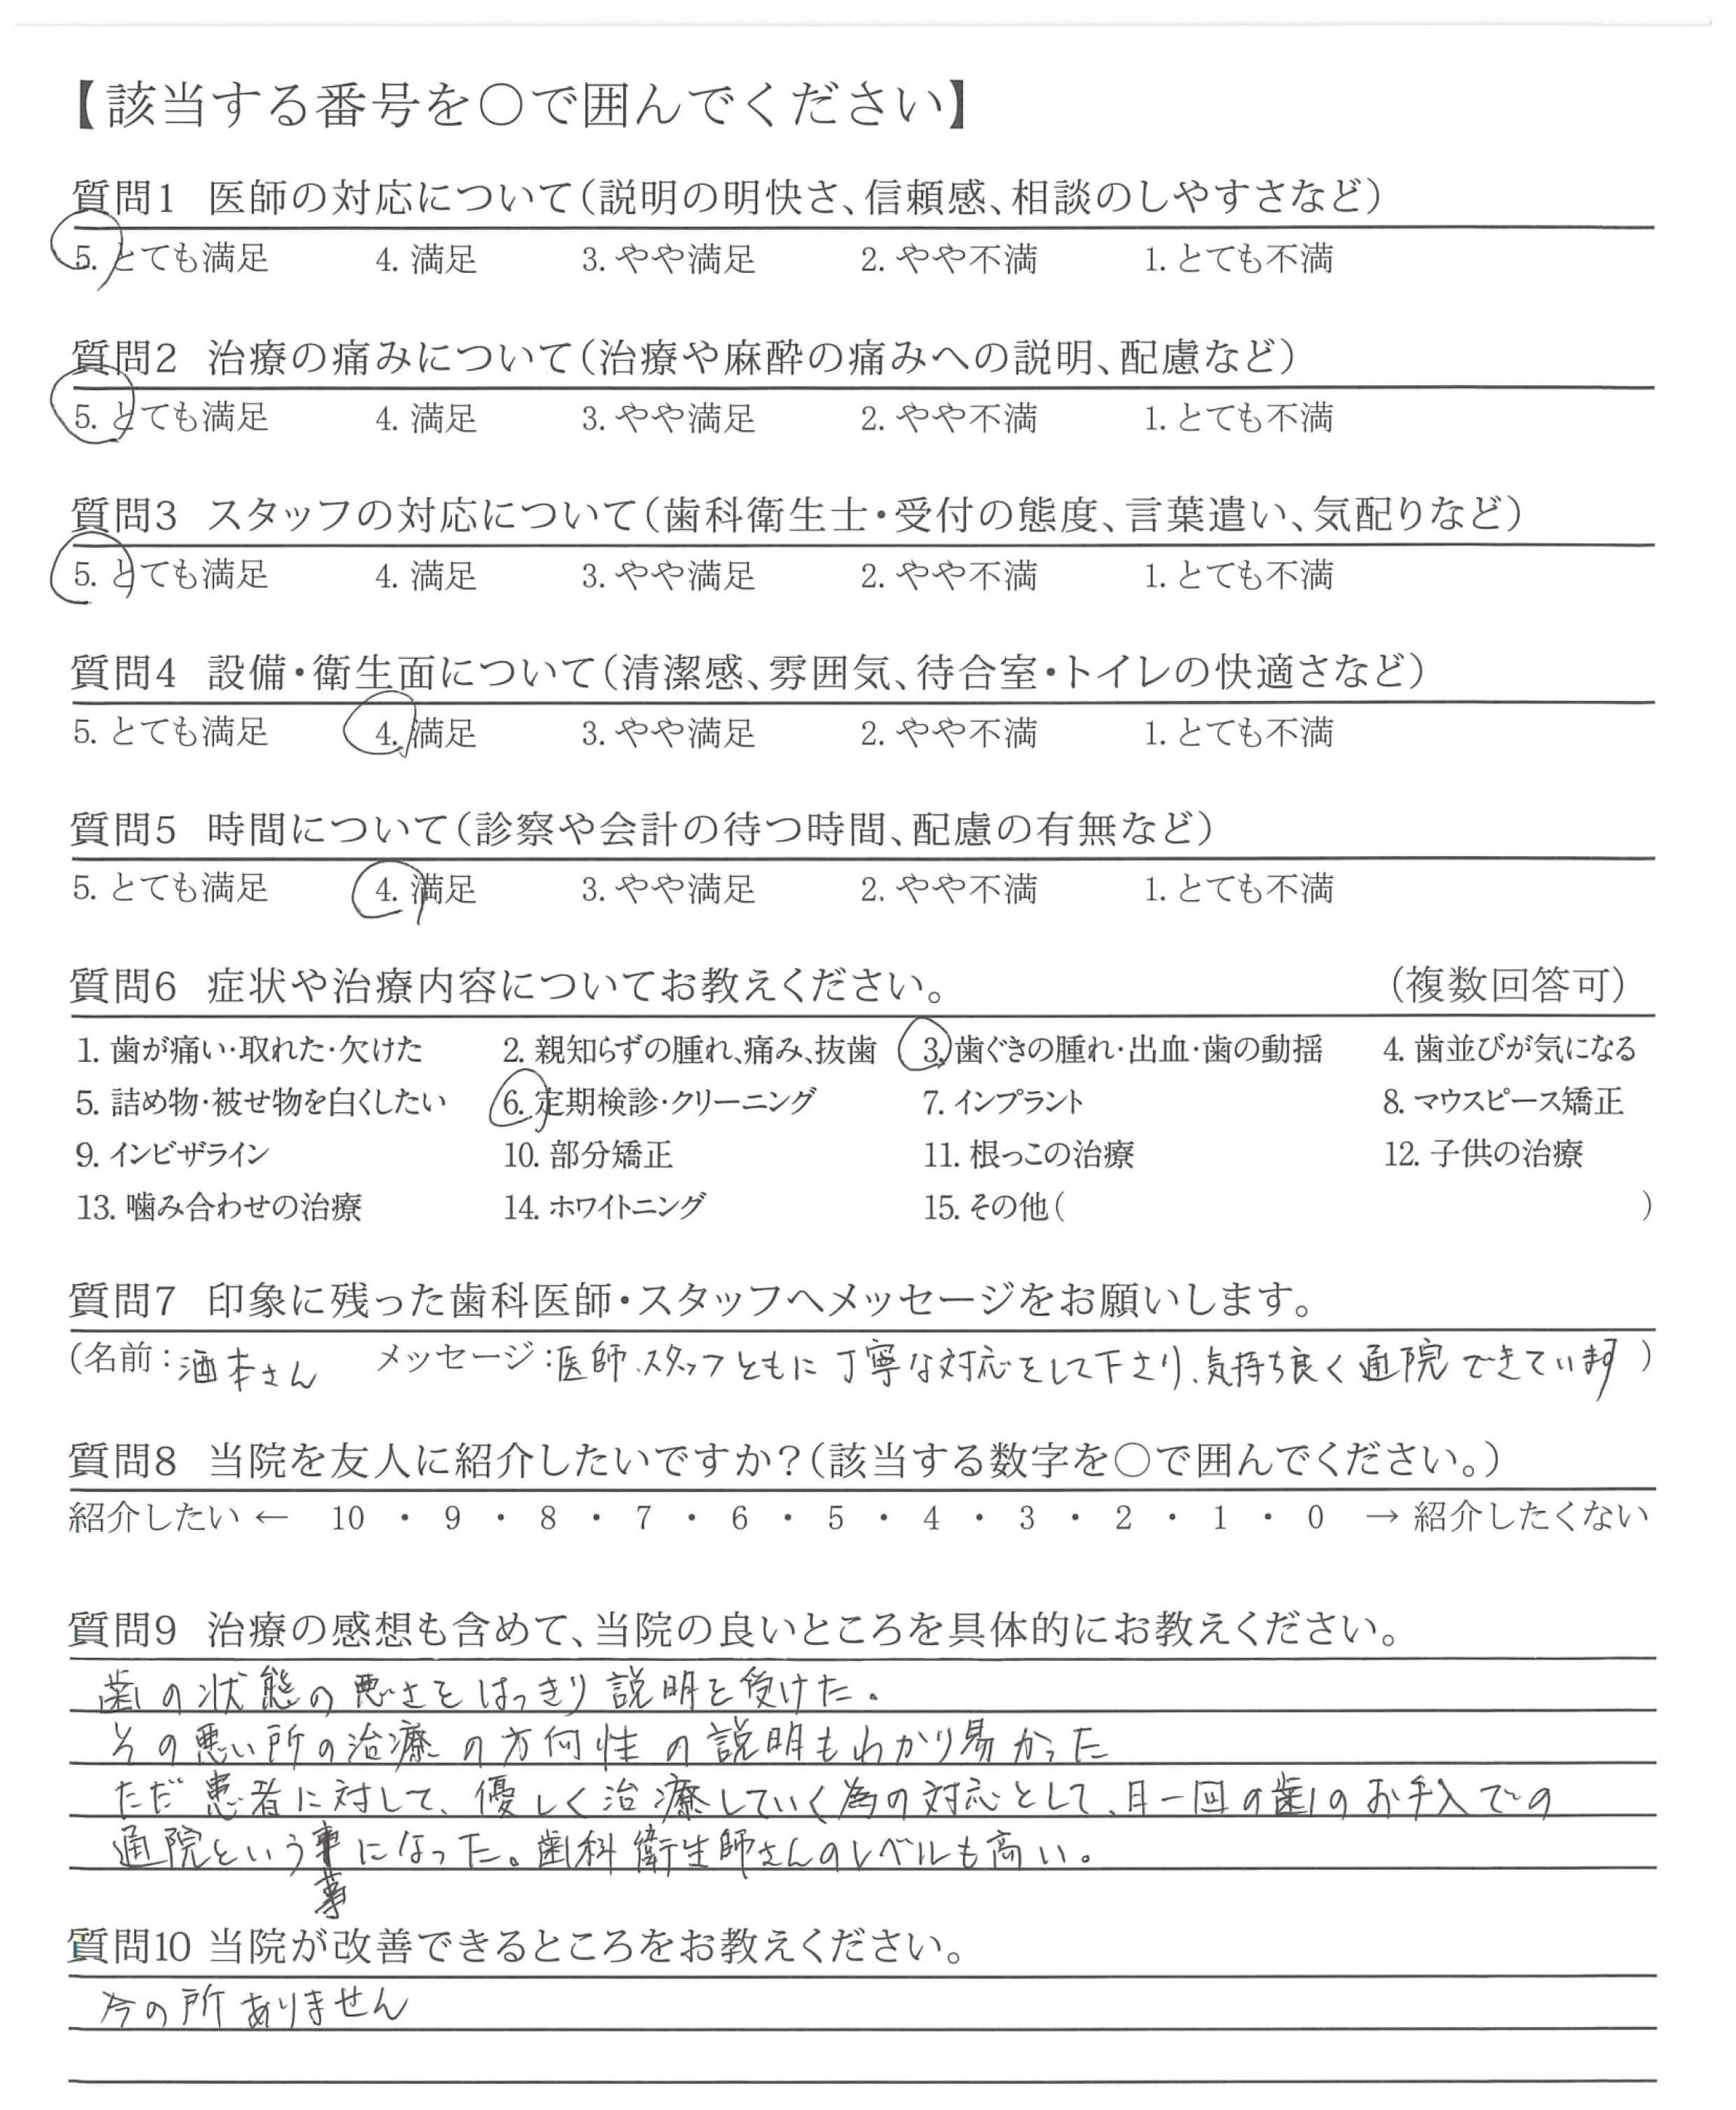 【該当する番号を○で囲んでください】
質問1 医師の対応について(説明の明快さ、信頼感、相談のしやすさなど)
5. とても満足 4. 満足 3. やや満足 2. やや不満 1. とても不満
質問2 治療の痛みについて(治療や麻酔の痛みへの説明、配慮など)
5. とても満足 4. 満足 3. やや満足 2. やや不満 1. とても不満
質問3 スタッフの対応について(歯科衛生士・受付の態度、言葉遣い、気配りなど)
5. とても満足 4. 満足 3. やや満足 2. やや不満 1. とても不満
質問4 設備・衛生面について(清潔感、雰囲気、待合室・トイレの快適さなど)
5. とても満足 4. 満足 3. やや満足 2. やや不満 1. とても不満
質問5 時間について(診察や会計の待つ時間、配慮の有無など)
5. とても満足 4. 満足 3. やや満足 2. やや不満 1. とても不満
質問6 症状や治療内容についてお教えください。 (複数回答可)
1. 歯が痛い・取れた・欠けた 2. 親知らずの腫れ、痛み、抜歯 3. 歯ぐきの腫れ・出血・歯の動揺 4. 歯並びが気になる
5. 詰め物・被せ物を白くしたい 6. 定期検診・クリーニング 7. インプラント 8. マウスピース矯正
9. インビザライン 10. 部分矯正 11. 根っこの治療 12. 子供の治療
13. 噛み合わせの治療 14. ホワイトニング 15. その他( )
質問7 印象に残った歯科医師・スタッフへメッセージをお願いします。
(名前:酒本さん メッセージ:医師、スタッフともに丁寧な対応をして下さり、気持ち良く通院できています)
質問8 当院を友人に紹介したいですか?(該当する数字を○で囲んでください。)
紹介したい ← 10 ・ 9 ・ 8 ・ 7 ・ 6 ・ 5 ・ 4 ・ 3 ・ 2 ・ 1 ・ 0 → 紹介したくない
質問9 治療の感想も含めて、当院の良いところを具体的にお教えください。
歯の状態の悪さをはっきり説明を受けた。
その悪い所の治療の方向性の説明もわかり易かった
ただ患者に対して、優しく治療していく為の対応として、月一回の歯のお手入での
通院という事になった。歯科衛生師さんのレベルも高い。
質問10 当院が改善できるところをお教えください。
今の所ありません